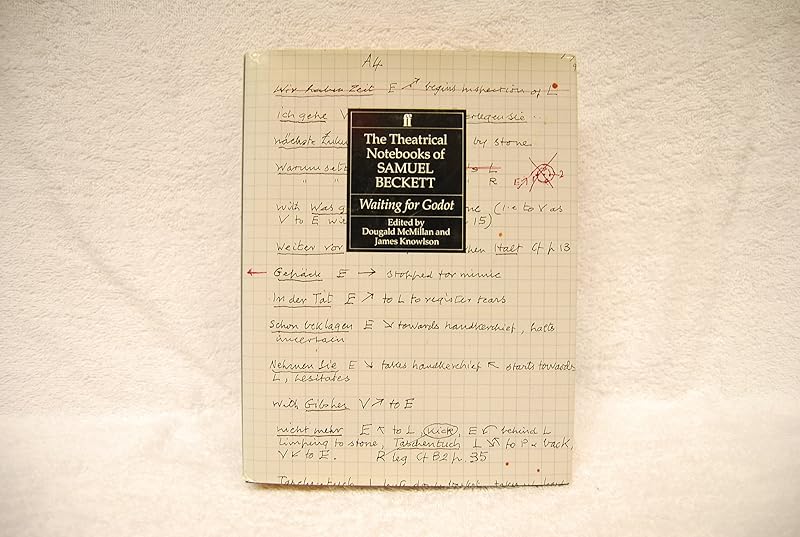 A4
Wir haben Zeit E ↗ begins inspection of L
ich gehe V erlegen Sie..
nächste by stone
ff
The Theatrical
Notebooks of
SAMUEL
BECKETT
Waiting for Godot
Edited by
Dougald McMillan and
James Knowlson
Warum L
R E 2
With Was (i.e to V as
V to E 15)
Weiter vor Halt Cf p 13
← Gepäck E → stopped for mimic
In der Tat E ↗ to L to register tears
Schon beklagen E ↘ towards handkerchief, halts
uncertain
Nehmen Sie E ↘ takes handkerchief ↖ starts towards
L, hesitates
With Gibsher V ↗ to E
nicht mehr E ↖ to L, kick, E ↙ behind L
limping to stone, Taschentuch L to P & back,
V to E. R leg Cf B2 p. 35
Taschentuch L